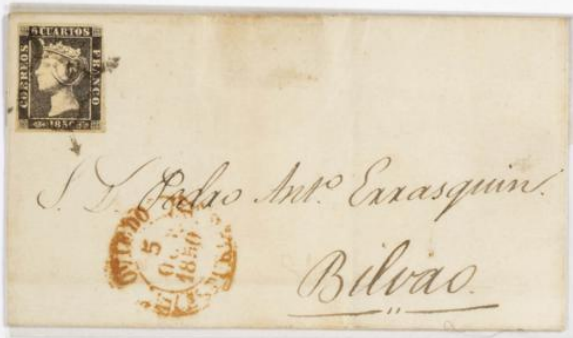 6 CUARTOS
CORREOS
FRANCO
1850
S. D. Pedro Anto. Errasquin.
OVIEDO
5
OCT
1850
Bilvao.